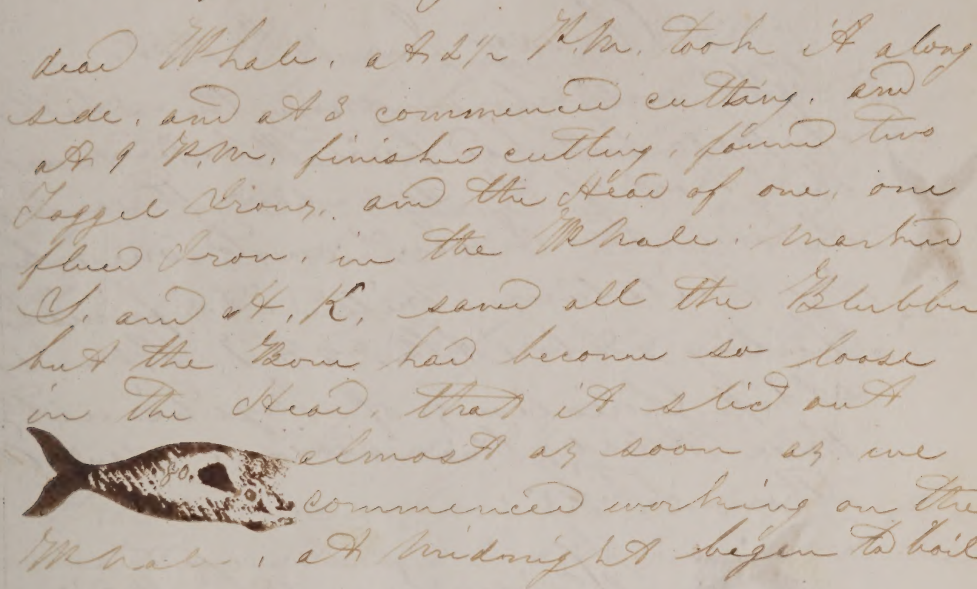 dead Whale, at 2 1/2 P.M. took it along
side, and at 3 commenced cutting, and
at 9 P.M. finished cutting, found two
Toggel Irons, and the Head of one, one
flued Iron, in the Whale, marked
S. and H. K. saved all the Blubber
but the Bone had become so loose
in the Head, that it slid out
almost as soon as we
80.
commenced working on the
Whale, at Midnight began to boil